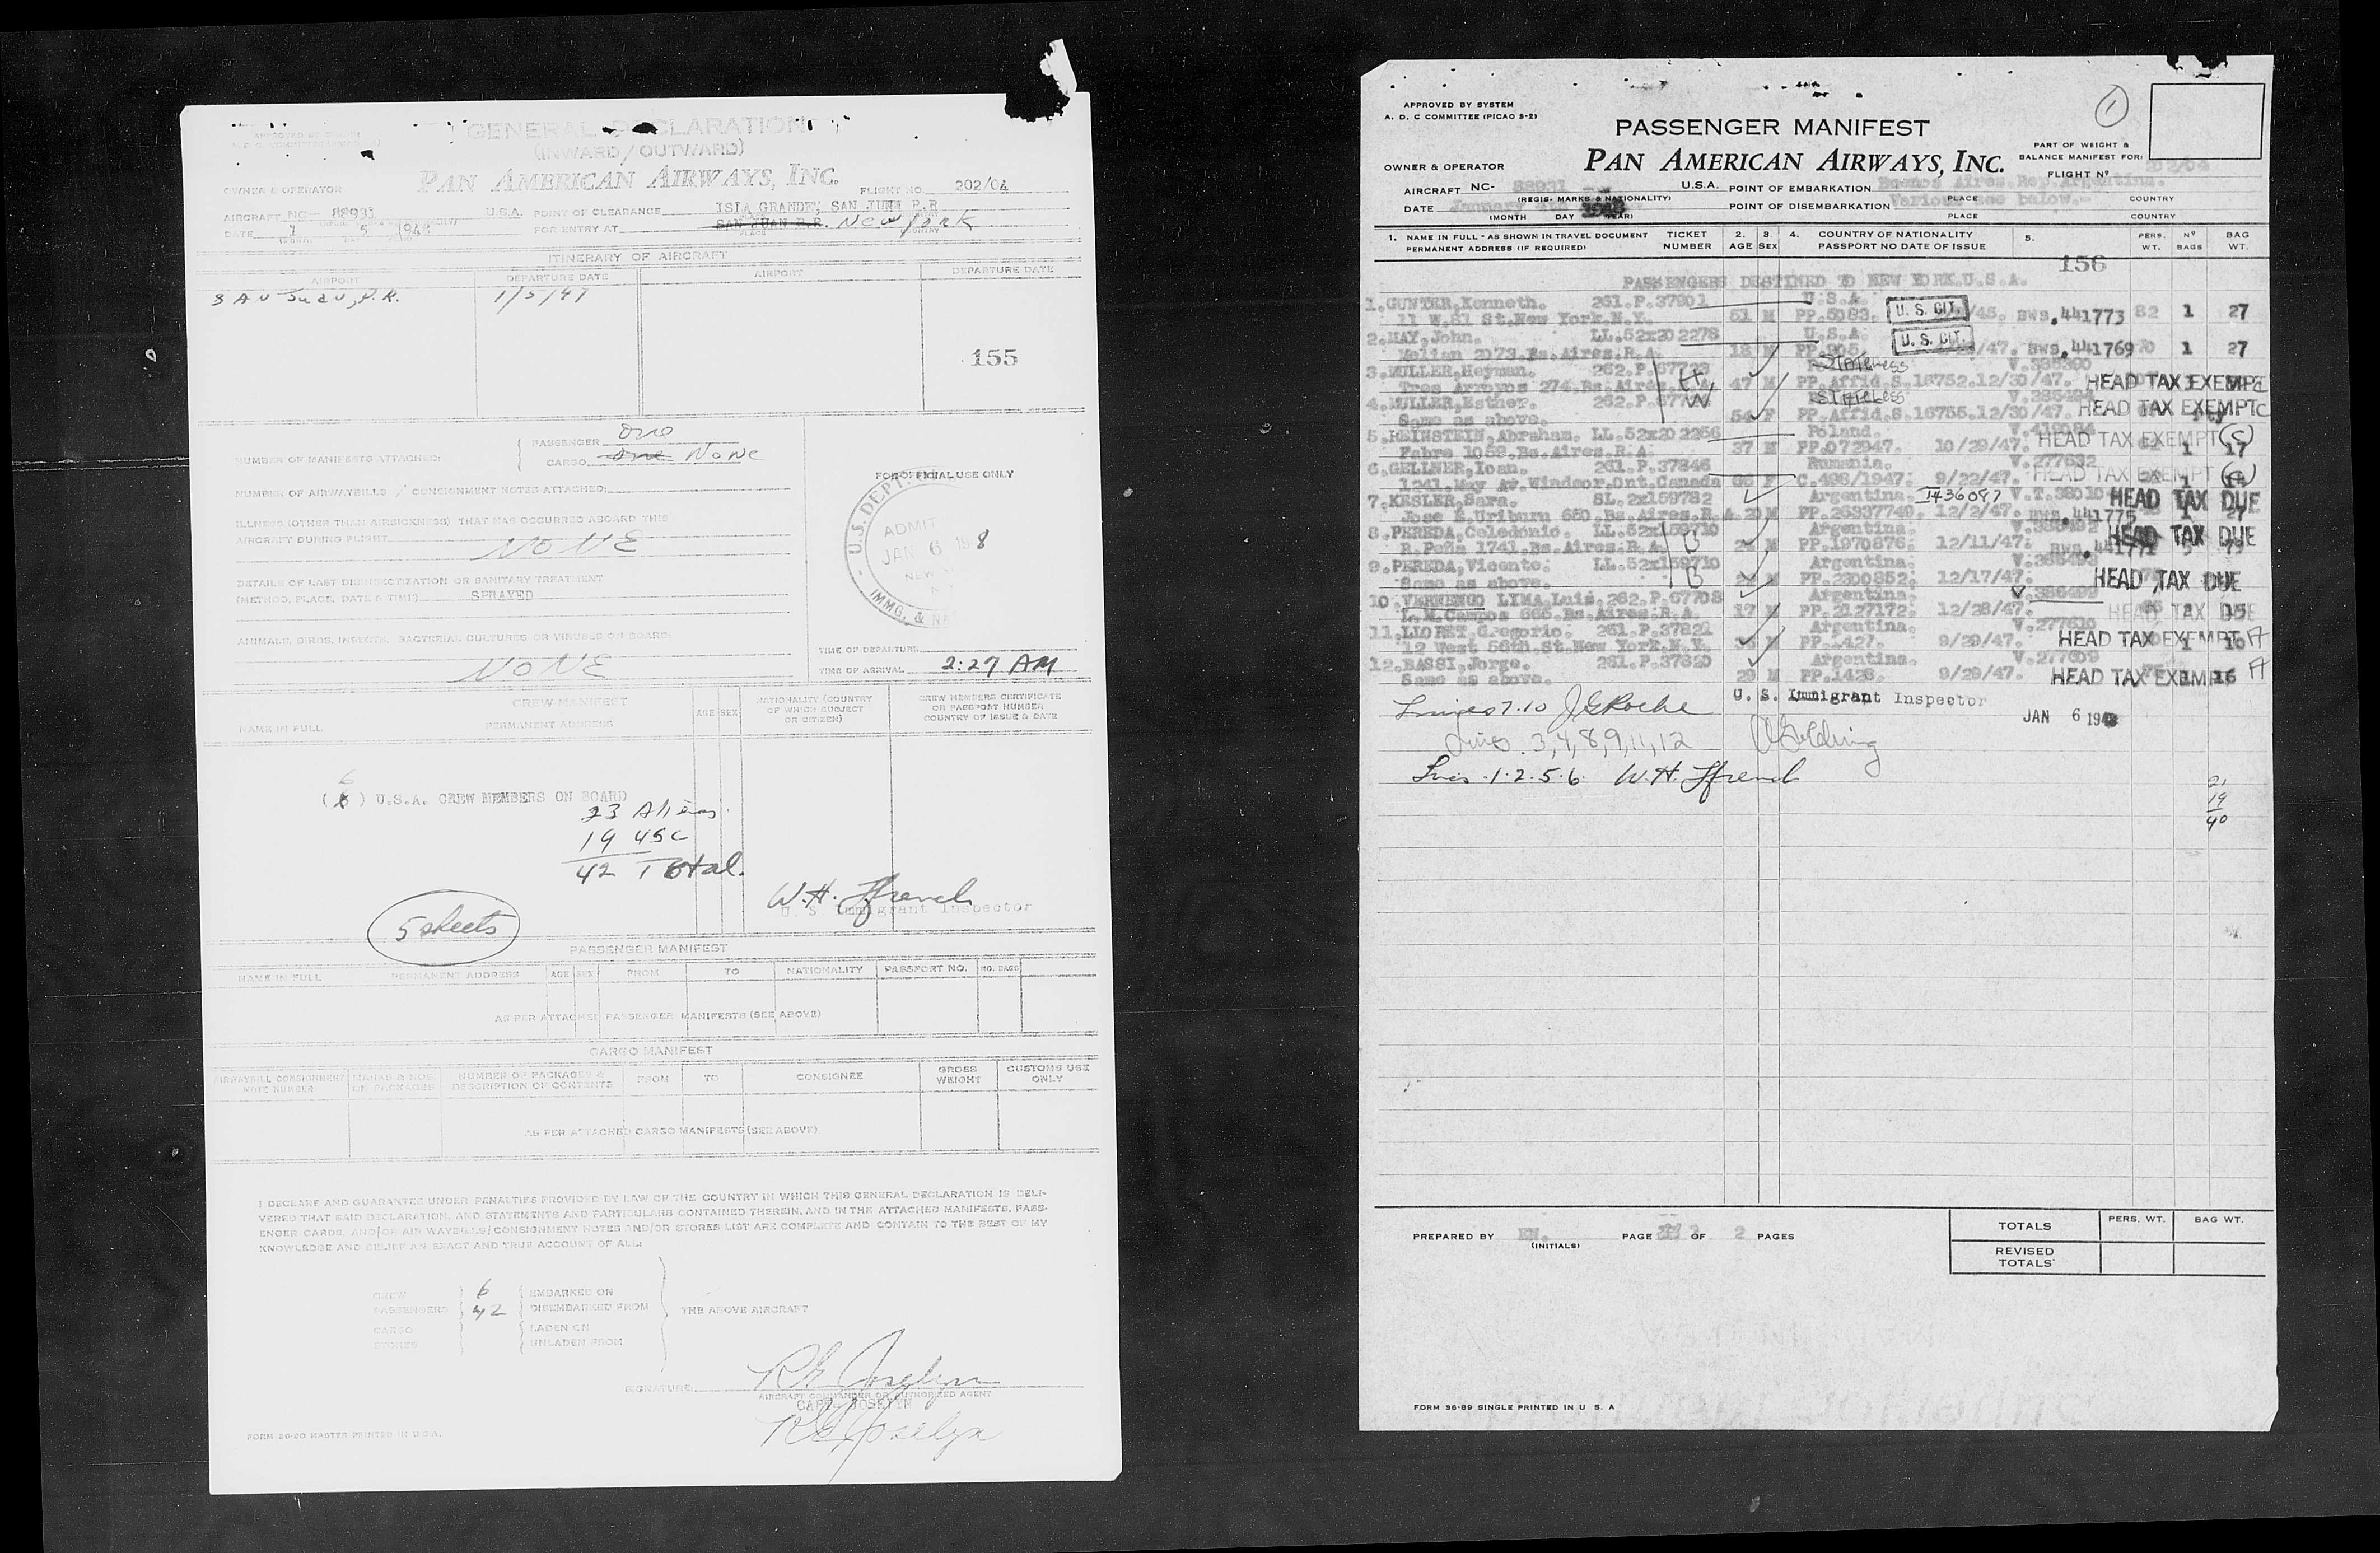 GENERAL DECLARATION
(INWARD/OUTWARD)
PAN AMERICAN AIRWAYS, INC.
OWNER & OPERATOR
FLIGHT NO. 202/04
AIRCRAFT NC- 88931 U.S.A. POINT OF CLEARANCE ISLA GRANDE, SAN JUAN P.R.
DATE 1 5 1948 FOR ENTRY AT SAN JUAN P.R. New York
ITINERARY OF AIRCRAFT
AIRPORT DEPARTURE DATE AIRPORT DEPARTURE DATE
SAN JUAN, P.R. 1/5/47
155
NUMBER OF MANIFESTS ATTACHED: PASSENGER One
CARGO One None
NUMBER OF AIRWAYBILLS / CONSIGNMENT NOTES ATTACHED:
ILLNESS (OTHER THAN AIRSICKNESS) THAT HAS OCCURRED ABOARD THIS
AIRCRAFT DURING FLIGHT NONE
DETAILS OF LAST DISINSECTIZATION OR SANITARY TREATMENT
(METHOD, PLACE, DATE & TIME) SPRAYED
ANIMALS, BIRDS, INSECTS, BACTERIAL CULTURES OR VIRUSES ON BOARD:
NONE
FOR OFFICIAL USE ONLY
U.S. DEPT.
ADMIT
JAN 6 8
IMMG. & NA
TIME OF DEPARTURE
TIME OF ARRIVAL 2:27 AM
CREW MANIFEST
NAME IN FULL PERMANENT ADDRESS AGE SEX NATIONALITY (COUNTRY OF WHICH SUBJECT OR CITIZEN) CREW MEMBERS CERTIFICATE OR PASSPORT NUMBER COUNTRY OF ISSUE & DATE
6
( ) U.S.A. CREW MEMBERS ON BOARD
23 Aliens
19 USC
42 Total.
5 sheets
W.H. Ffrench
U. S. Immigrant Inspector
PASSENGER MANIFEST
NAME IN FULL PERMANENT ADDRESS AGE SEX FROM TO NATIONALITY PASSPORT NO. NO. BAGS
AS PER ATTACHED PASSENGER MANIFESTS (SEE ABOVE)
CARGO MANIFEST
AIRWAYBILL CONSIGNMENT NOTE NUMBER MARKS & NOS. OF PACKAGES NUMBER OF PACKAGES & DESCRIPTION OF CONTENTS FROM TO CONSIGNEE GROSS WEIGHT CUSTOMS USE ONLY
AS PER ATTACHED CARGO MANIFESTS (SEE ABOVE)
I DECLARE AND GUARANTEE UNDER PENALTIES PROVIDED BY LAW OF THE COUNTRY IN WHICH THIS GENERAL DECLARATION IS DELI-
VERED THAT SAID DECLARATION, AND STATEMENTS AND PARTICULARS CONTAINED THEREIN, AND IN THE ATTACHED MANIFESTS, PASS-
ENGER CARDS, AND/OR AIR WAYBILLS/CONSIGNMENT NOTES AND/OR STORES LIST ARE COMPLETE AND CONTAIN TO THE BEST OF MY
KNOWLEDGE AND BELIEF AN EXACT AND TRUE ACCOUNT OF ALL:
CREW 6 EMBARKED ON
PASSENGERS 42 DISEMBARKED FROM THE ABOVE AIRCRAFT
CARGO LADEN ON
STORES UNLADEN FROM
SIGNATURE R G Joselyn
AIRCRAFT COMMANDER OR AUTHORIZED AGENT
CAPT. JOSELYN
R G Joselyn
FORM 36-90 MASTER PRINTED IN U.S.A.
APPROVED BY SYSTEM
A. D. C COMMITTEE (PICAO 3-2)
1
PASSENGER MANIFEST
PAN AMERICAN AIRWAYS, INC.
OWNER & OPERATOR
PART OF WEIGHT &
BALANCE MANIFEST FOR:
FLIGHT Nº 202/04
AIRCRAFT NC- 88931 U.S.A. POINT OF EMBARKATION Buenos Aires. Rep. Argentina.
(REGIS. MARKS & NATIONALITY) PLACE COUNTRY
DATE January 4th 1948 POINT OF DISEMBARKATION Various see below.-
(MONTH DAY YEAR) PLACE COUNTRY
1. NAME IN FULL - AS SHOWN IN TRAVEL DOCUMENT TICKET 2. 3. 4. COUNTRY OF NATIONALITY 5. PERS. Nº BAG
PERMANENT ADDRESS (IF REQUIRED) NUMBER AGE SEX PASSPORT NO DATE OF ISSUE WT. BAGS WT.
156
PASSENGERS DESTINED TO NEW YORK.U.S.A.
1.GUNTER,Kenneth. 261.P.37801 U.S.A.
11 W.81 St.New York.N.Y. 51 M PP.5083. U. S. CIT. /45. BWS.441773 82 1 27
2.MAY,John. LL.52x202278 U.S.A.
Melian 2073.Bs.Aires.R.A. 18 M PP.905. U. S. CIT. /47. BWS.441769 70 1 27
3.MULLER,Heyman. 262.P.67723 Stateless
Tres Arroyos 274.Bs.Aires.R.A. H 47 M PP.Affid.S.16752.12/30/47. HEAD TAX EXEMPT C
4.MULLER,Esther. 262.P. W Stateless
Same as above. 54 F PP.Affid.S.16755.12/30/47. HEAD TAX EXEMPT C
5.REINSTEIN,Abraham. LL.52x202256 Poland.
Fabre 1058.Bs.Aires.R.A. 37 M PP.072947. 10/29/47. HEAD TAX EXEMPT (C) 1 17
6.GELLNER,Ioan. 261.P.37846 Rumania. V.277632
1241.May Av.Windsor.Ont.Canada 60 F C.496/1947. 9/22/47. HEAD TAX EXEMPT 1
7.KESLER,Sara. SL.2x159782 Argentina. I436097 V.T.38010
Jose E.Uriburu 650.Bs.Aires.R.A. 20 M PP.26337749. 12/2/47. BWS.441775 HEAD TAX DUE
8.PEREDA,Celedonio. LL.52x159710 Argentina.
R.Peña 1741.Bs.Aires.R.A. B 24 M PP.1970876. 12/11/47. HEAD TAX DUE
9.PEREDA,Vicente. LL.52x159710 Argentina.
Same as above. B 22 M PP.2300852. 12/17/47. HEAD TAX DUE
10.VERNENGO LIMA,Luis.262.P.67708 Argentina.
L.M.Campos 665.Bs.Aires.R.A. 17 M PP.2127172. 12/28/47. HEAD TAX DUE
11.LLORET,Gregorio. 261.P.37821 Argentina. V.277610
12 West 56th.St.New York.N.Y. M PP.1427. 9/29/47. HEAD TAX EXEMPT A
12.BASSI,Jorge. 261.P.37820 Argentina. V.277609
Same as above. 29 M PP.1428. 9/29/47. HEAD TAX EXEMPT 16 A
Lines 7.10 J G Roche U. S. Immigrant Inspector
JAN 6 194
Lines 3,4,8,9,11,12
Lines 1.2.5.6. W.H. Ffrench
21
19
40
PREPARED BY EN. PAGE OF 2 PAGES
(INITIALS)
TOTALS PERS. WT. BAG WT.
REVISED TOTALS
FORM 36-89 SINGLE PRINTED IN U. S. A